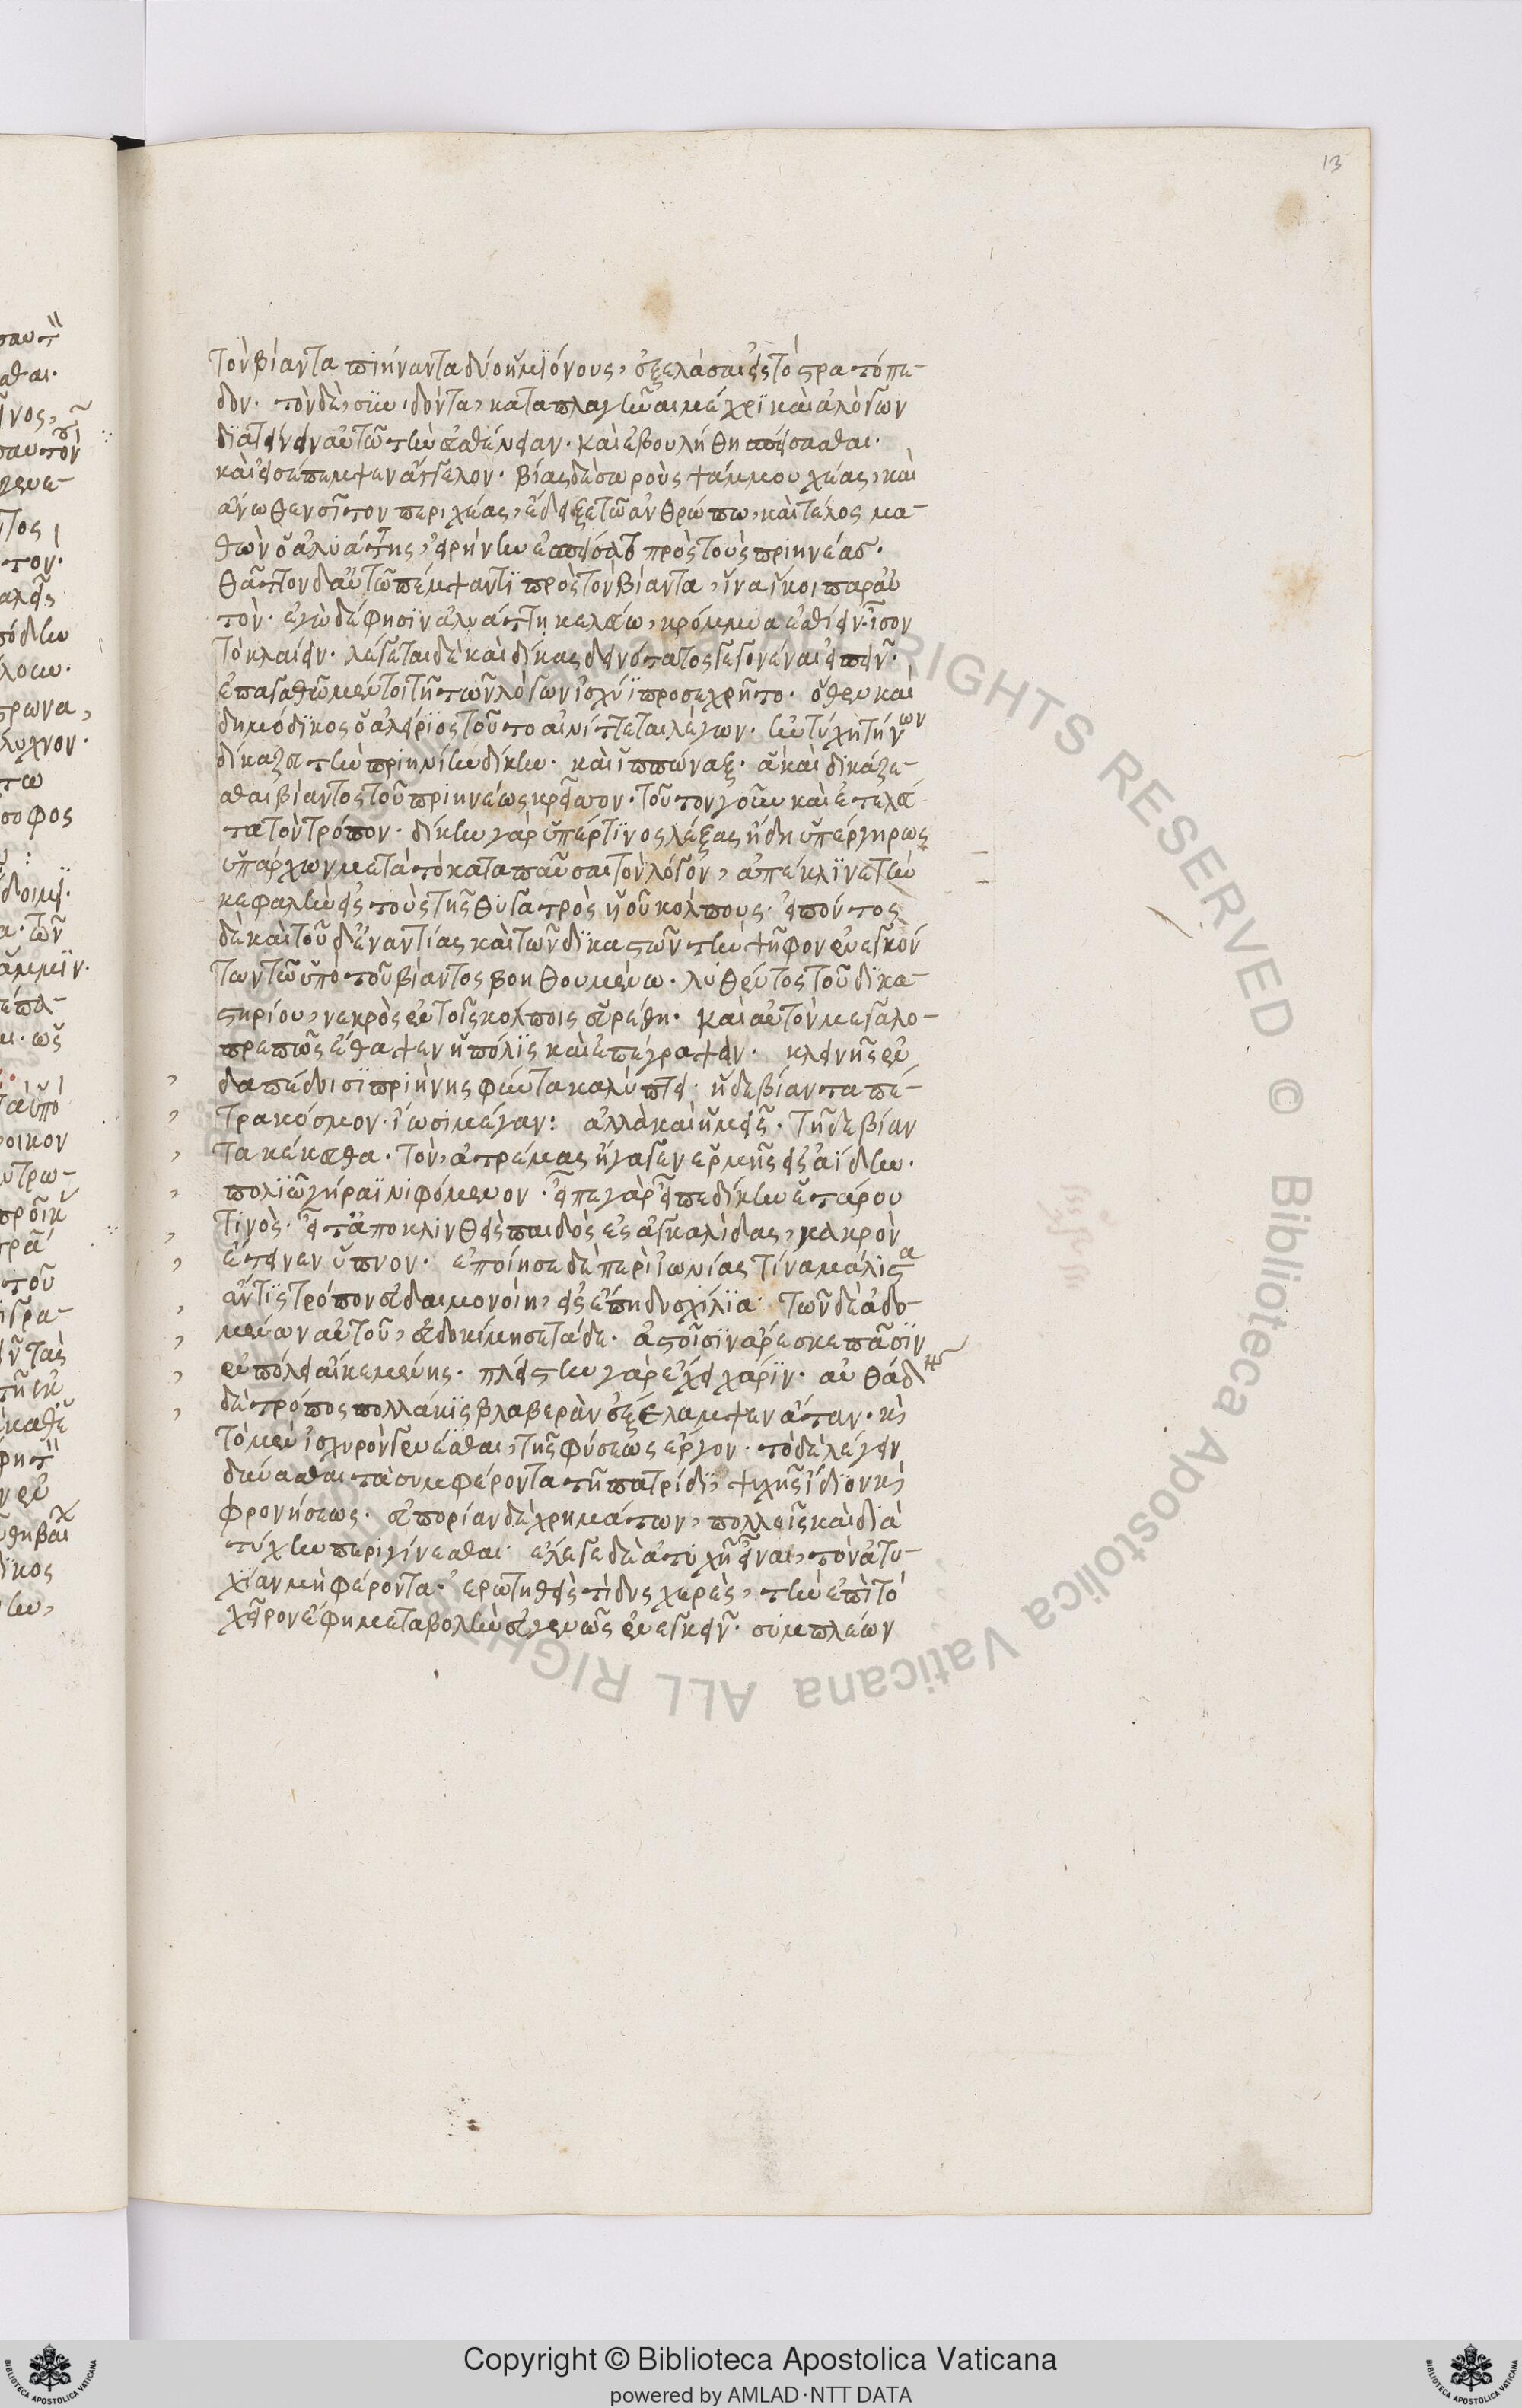 13
τὸν βίαντα πιήναντα δύο ἡμϊόνους, ἐξελάσαι εἰς τὸ στρατόπε-
δον. τὸν δὲ, συνιδόντα, καταπλαγῆναι μέχρι καὶ ἀλόγων
διατείνειν αὐτῶ τὴν εὐσθένειαν. καὶ ἐβουλήθη σπείσασθαι.
καὶ εἰσέπεμψεν ἄγγελον. βίας δὲ σωροὺς ψάμμου χέας, καὶ
ἄνωθεν σῖτον περιχέας, ἔδειξε τῶ ἀνθρώπω, καὶ τέλος μα-
θὼν ὁ ἀλυάττης, εἰρήνην ἐσπείσατο πρὸς τοὺς πριηνέας.
θᾶττον δ' αὐτῶ πέμψαντϊ πρὸς τὸν βίαντα, ἵνα ἥκοι παρ' αὐ
τὸν. ἐγὼ δέ φησϊν ἀλυάττη κελεύω, κρόμμυα ἐσθίειν. ἴσον
τὸ κλαίειν. λέγεται δὲ καὶ δίκας δεινότατος γεγονέναι εἰπεῖν.
ἐπ' ἀγαθῶ μέντοι τῆ τῶν λόγων ἰσχύϊ προσεχρῆτο. ὅθεν καὶ
δημόδϊκος ὁ ἀλείριος τοῦτο αἰνίττεται λέγων. ἢν τύχη τίνων
δίκαζευ τὴν πριηνίην δίκην. καὶ ἱππώναξ. ἃ καὶ δϊκάζε-
σθαι βίαντος τοῦ πριηνέως κρεῖσσον. τοῦτον γοῦν καὶ ἐτελεύ-
τα τὸν τρόπον. δίκην γὰρ ὑπέρ τϊνος λέξας ἤδη ὑπέργηρως
ὑπάρχων μετὰ τὸ καταπαῦσαι τὸν λόγον, ἀπέκλϊνε τὴν
κεφαλὴν εἰς τοὺς τῆς θυγατρὸς υἱοῦ κόλπους. εἰπόντος
δὲ καὶ τοῦ δἐναντίας καὶ τῶν δϊκαστῶν τὴν ψῆφον ἐνεγκόν
των τῶ ὑπὸ τοῦ βίαντος βοηθουμένω. λυθέντος τοῦ δϊκα-
στηρίου, νεκρὸς ἐν τοῖς κόλποις εὑρέθη. καὶ αὐτὸν μεγαλο-
πρεπῶς ἔθαψεν ἡ πόλϊς καὶ ἐπέγραψεν. κλεινῆς ἐν
δαπέδοισϊ πριήνης φύντα καλύπτει. ἥδε βίαντα πέ-
τρα κόσμον. ἴωσι μέγαν: ἀλλὰ καὶ ἡμεῖς. τῆδε βίαν
τα κέκευθα. τὸν, ἀτρέμας ἤγαγεν ἑρμῆς εἰς ἀΐδην.
πολϊῶ γήραϊ νιφόμενον. εἶπε γὰρ εἶπε δίκην ἑτάρου
τϊνὸς. εἶτ' ἀποκλινθεὶς παιδὸς ἐς ἀγκαλίδας, μακρὸν
ἔτεινεν ὕπνον. ἐποίησε δὲ περὶ ἰωνίας τίνα μάλιστα
ἄντϊς τρόπον εὐδαιμονοίη, εἰς ἔπη δυσχίλϊα. τῶν δὲ ἀδο-
μένων αὐτοῦ, εὐδοκίμησε τάδε. ἀστοῖσϊν ἄρεσκε πᾶσϊν
ἐν πόλει αἴκε μένης. πλείστην γὰρ ἔχει χάρϊν. αὐθάδης
δὲ τρόπος πολλάκϊς βλαβερὰν ἐξέλαμψεν ἄταν. κὶ
τὸ μὲν ἰσχυρὸν γενέσθαι, τῆς φύσεως ἔργον. τὸ δὲ λέγειν
δύνασθαι τὰ συμφέροντα τῆ πατρίδϊ, ψυχῆς ἴδϊον κὶ
φρονήσεως. εὐπορίαν δὲ χρημάτων, πολλοῖς καὶ διὰ
τύχην περιγίνεσθαι. ἔλεγε δὲ ἀτυχῆ εἶναι, τὸν ἀτυ-
χίαν μὴ φέροντα. ἐρωτηθεὶς τί δυσχερὲς, τὴν ἐπὶ τὸ
χεῖρον ἔφη μεταβολὴν εὐγενῶς ἐνεγκεῖν. συμπλέων
ALL RIGHTS RESERVED © Biblioteca Apostolica Vaticana ALL RIGHTS
Copyright © Biblioteca Apostolica Vaticana
powered by AMLAD·NTT DATA